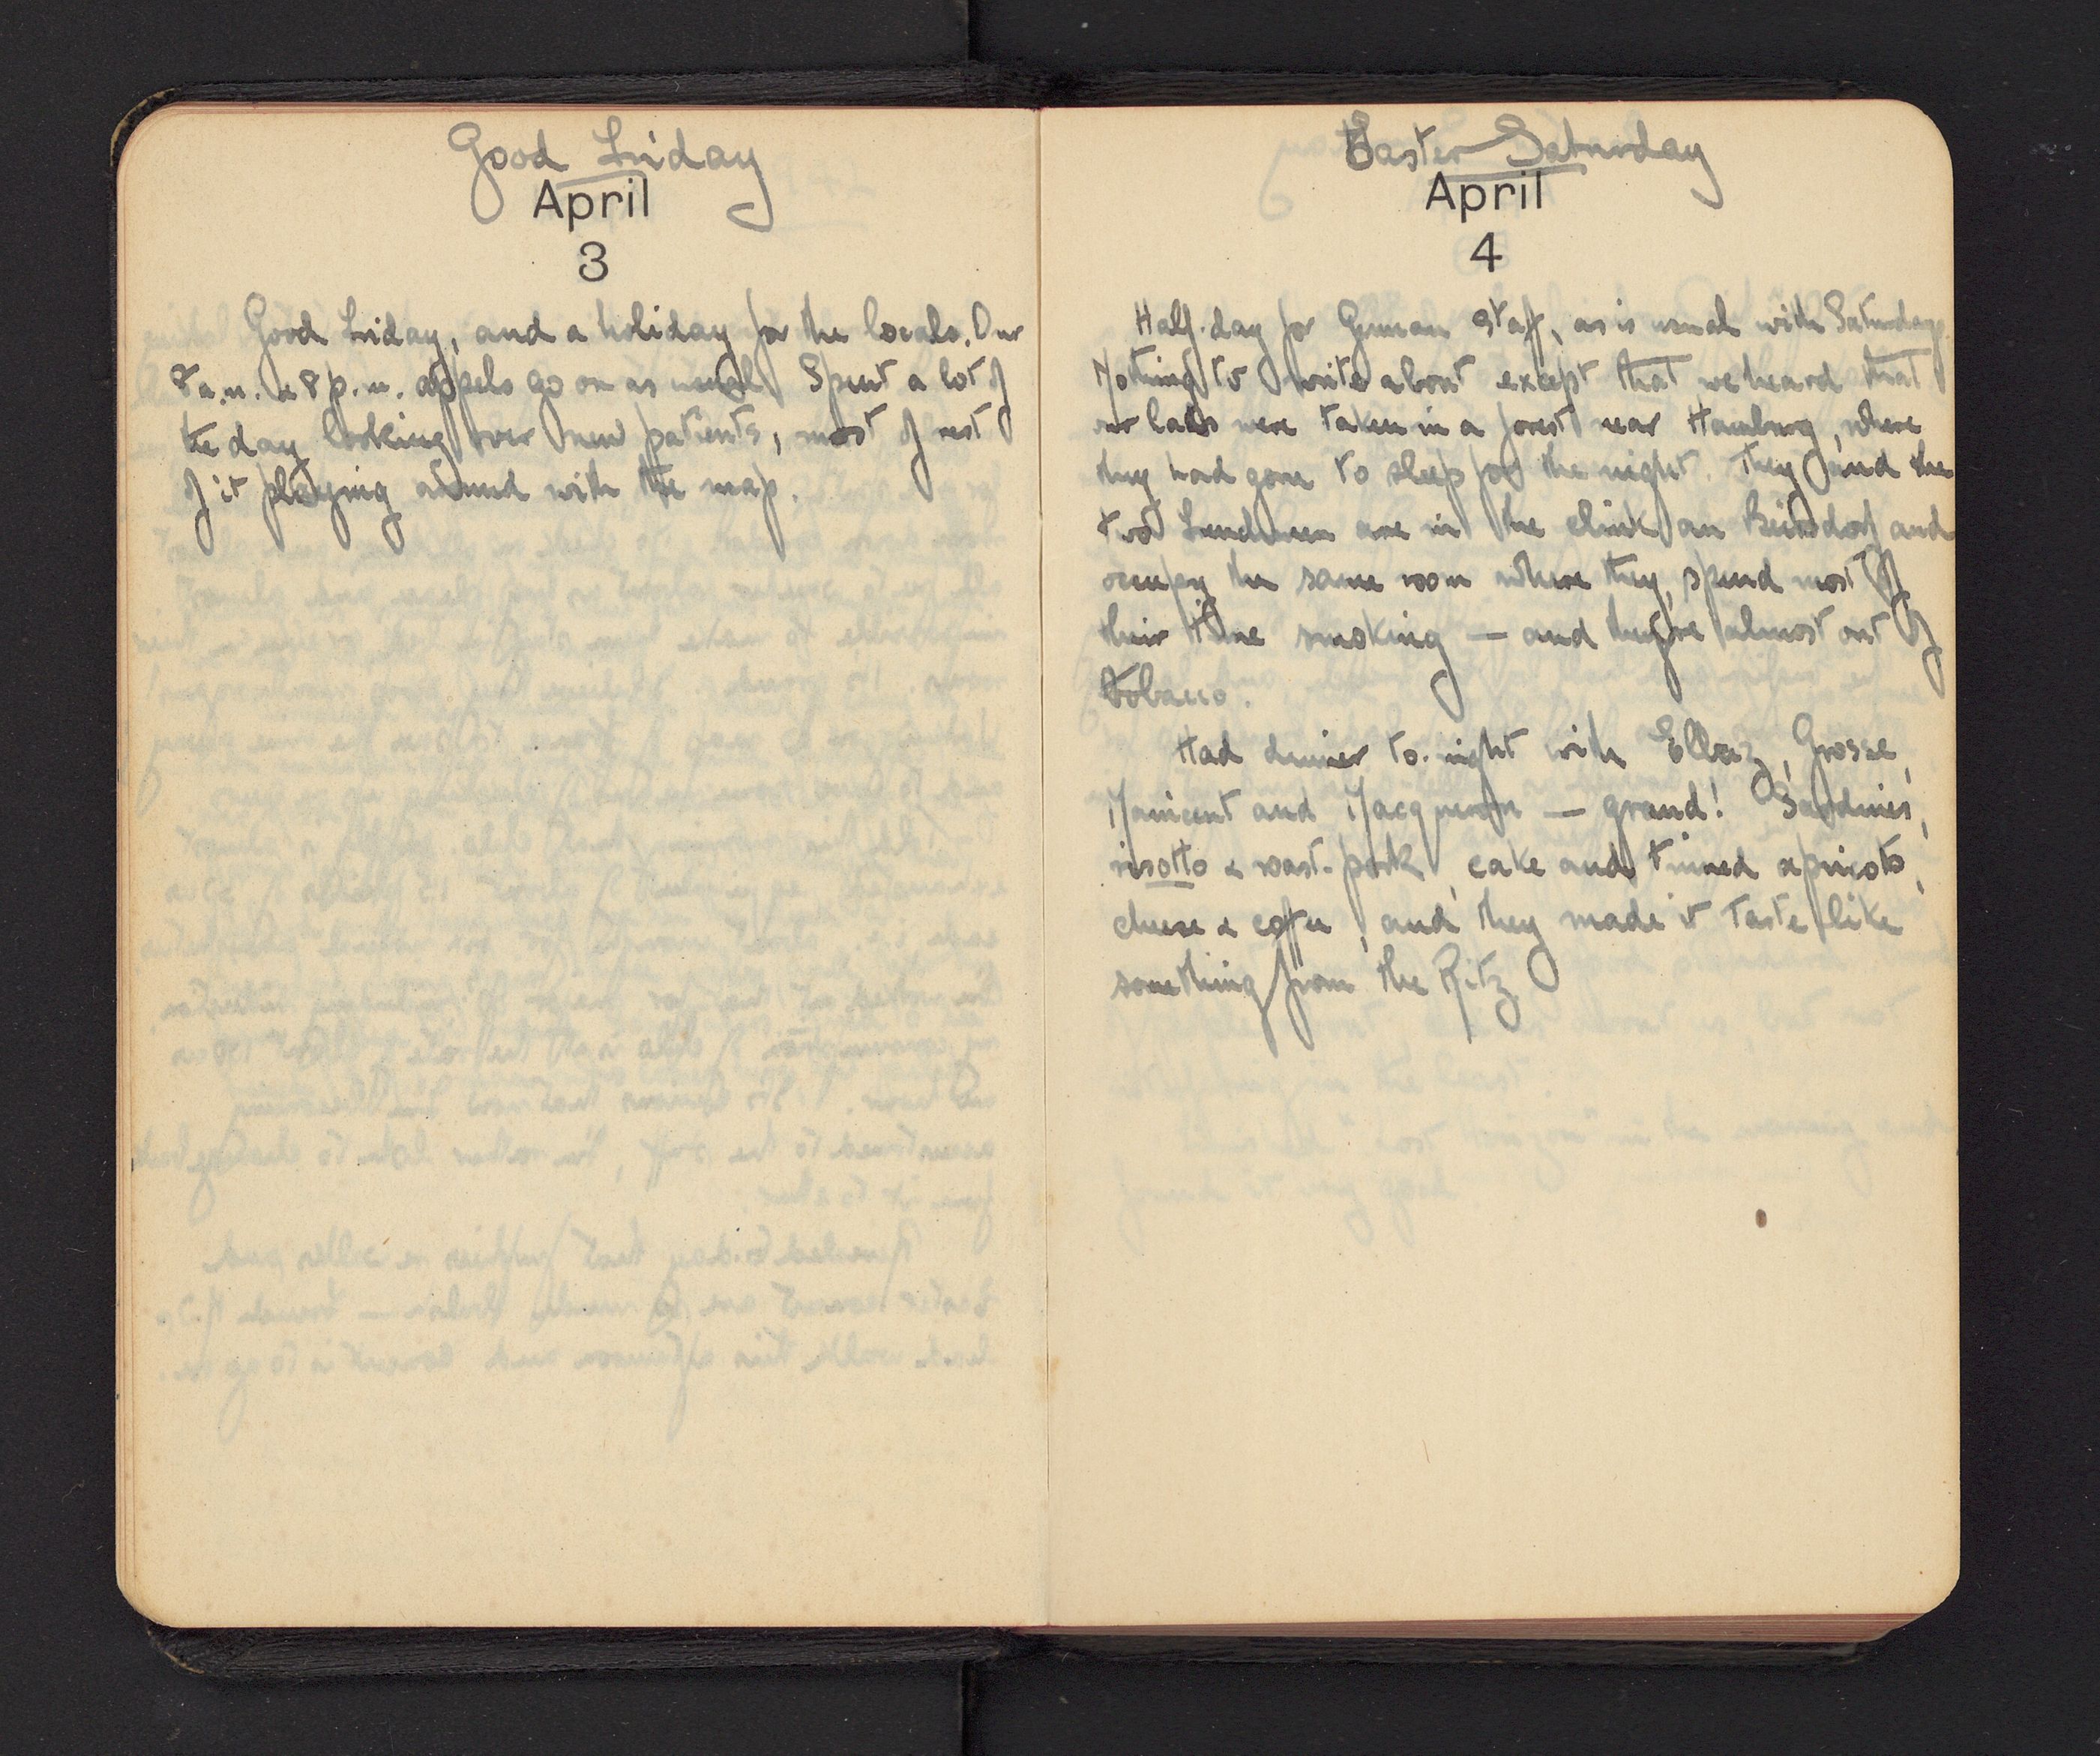 Good Friday
April
3
Good Friday, and a holiday for the locals. Our
8 a.m. & 8 p.m. appels go on as usual. Spent a lot of
the day looking over new patients, most of rest
of it playing around with the map.
Easter Saturday
April
4
Half-day for German staff, as is usual with Saturday.
Nothing to write about except that we heard that
our lads were taken in a forest near Hamburg, where
they had gone to sleep for the night. They and the
two Frenchmen are in the clink an and
occupy the same room where they spend most of
their time smoking — and therefore almost out of
tobacco.
Had dinner to-night with Grosse,
and — grand! Sardines,
risotto & roast-pork, cake and tinned apricots,
cheese & coffee, and they made it taste like
something from the Ritz